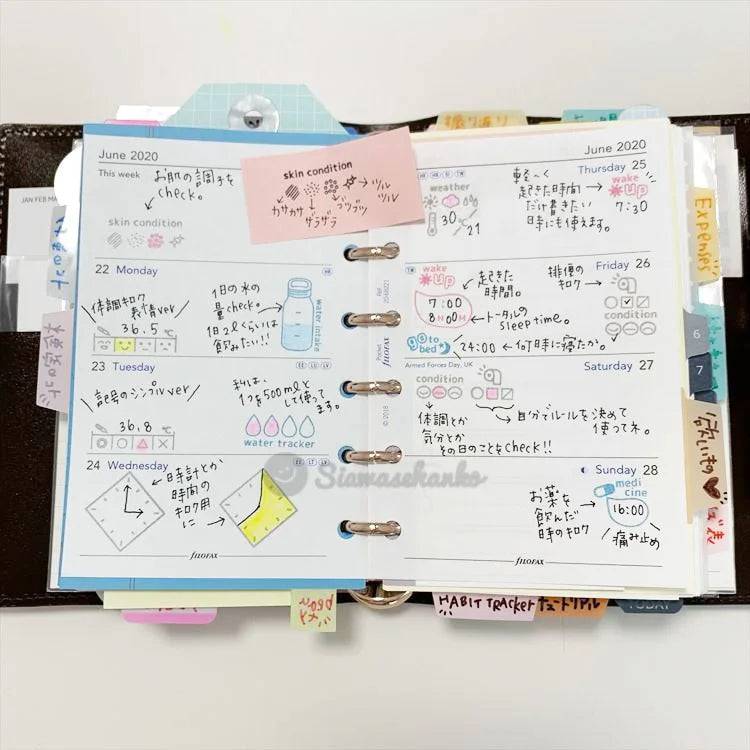 振り返り
June 2020
This week
お肌の調子を
check。
skin condition
skin condition
カサカサ
ザラザラ
ブツブツ
ツルツル
22 Monday
体調キロク
表情ver
36.5
1日の水の
量check。
1日2Lくらいは
飲みたい!!
water intake
23 Tuesday
記号のシンプルver
36.8
私は、
1つを500mlと
して使ってます。
water tracker
24 Wednesday
時計とか
時間の
キロク用
に
FILOFAX
June 2020
Thursday 25
weather
30
21
軽〜く
起きた時間
だけ書きたい
時にも使えます。
wake
up
7:30
Friday 26
wake
up
7:00
8H00M
起きた
時間。
トータルの
sleep time。
go to
bed
24:00
何時に寝たか。
排便の
キロク
condition
Armed Forces Day, UK
Saturday 27
condition
体調とか
気分とか
その日のことをcheck!!
自分でルールを決めて
使ってネ。
Sunday 28
お薬を
飲んだ
時のキロク
medi
cine
16:00
痛み止め
FILOFAX
Pocket
FILOFAX
© 2018
Siawasehanko
JAN FEB
Expenses
6
7
欲しいもの
HABIT TRACKER
チュートリアル
TODAY